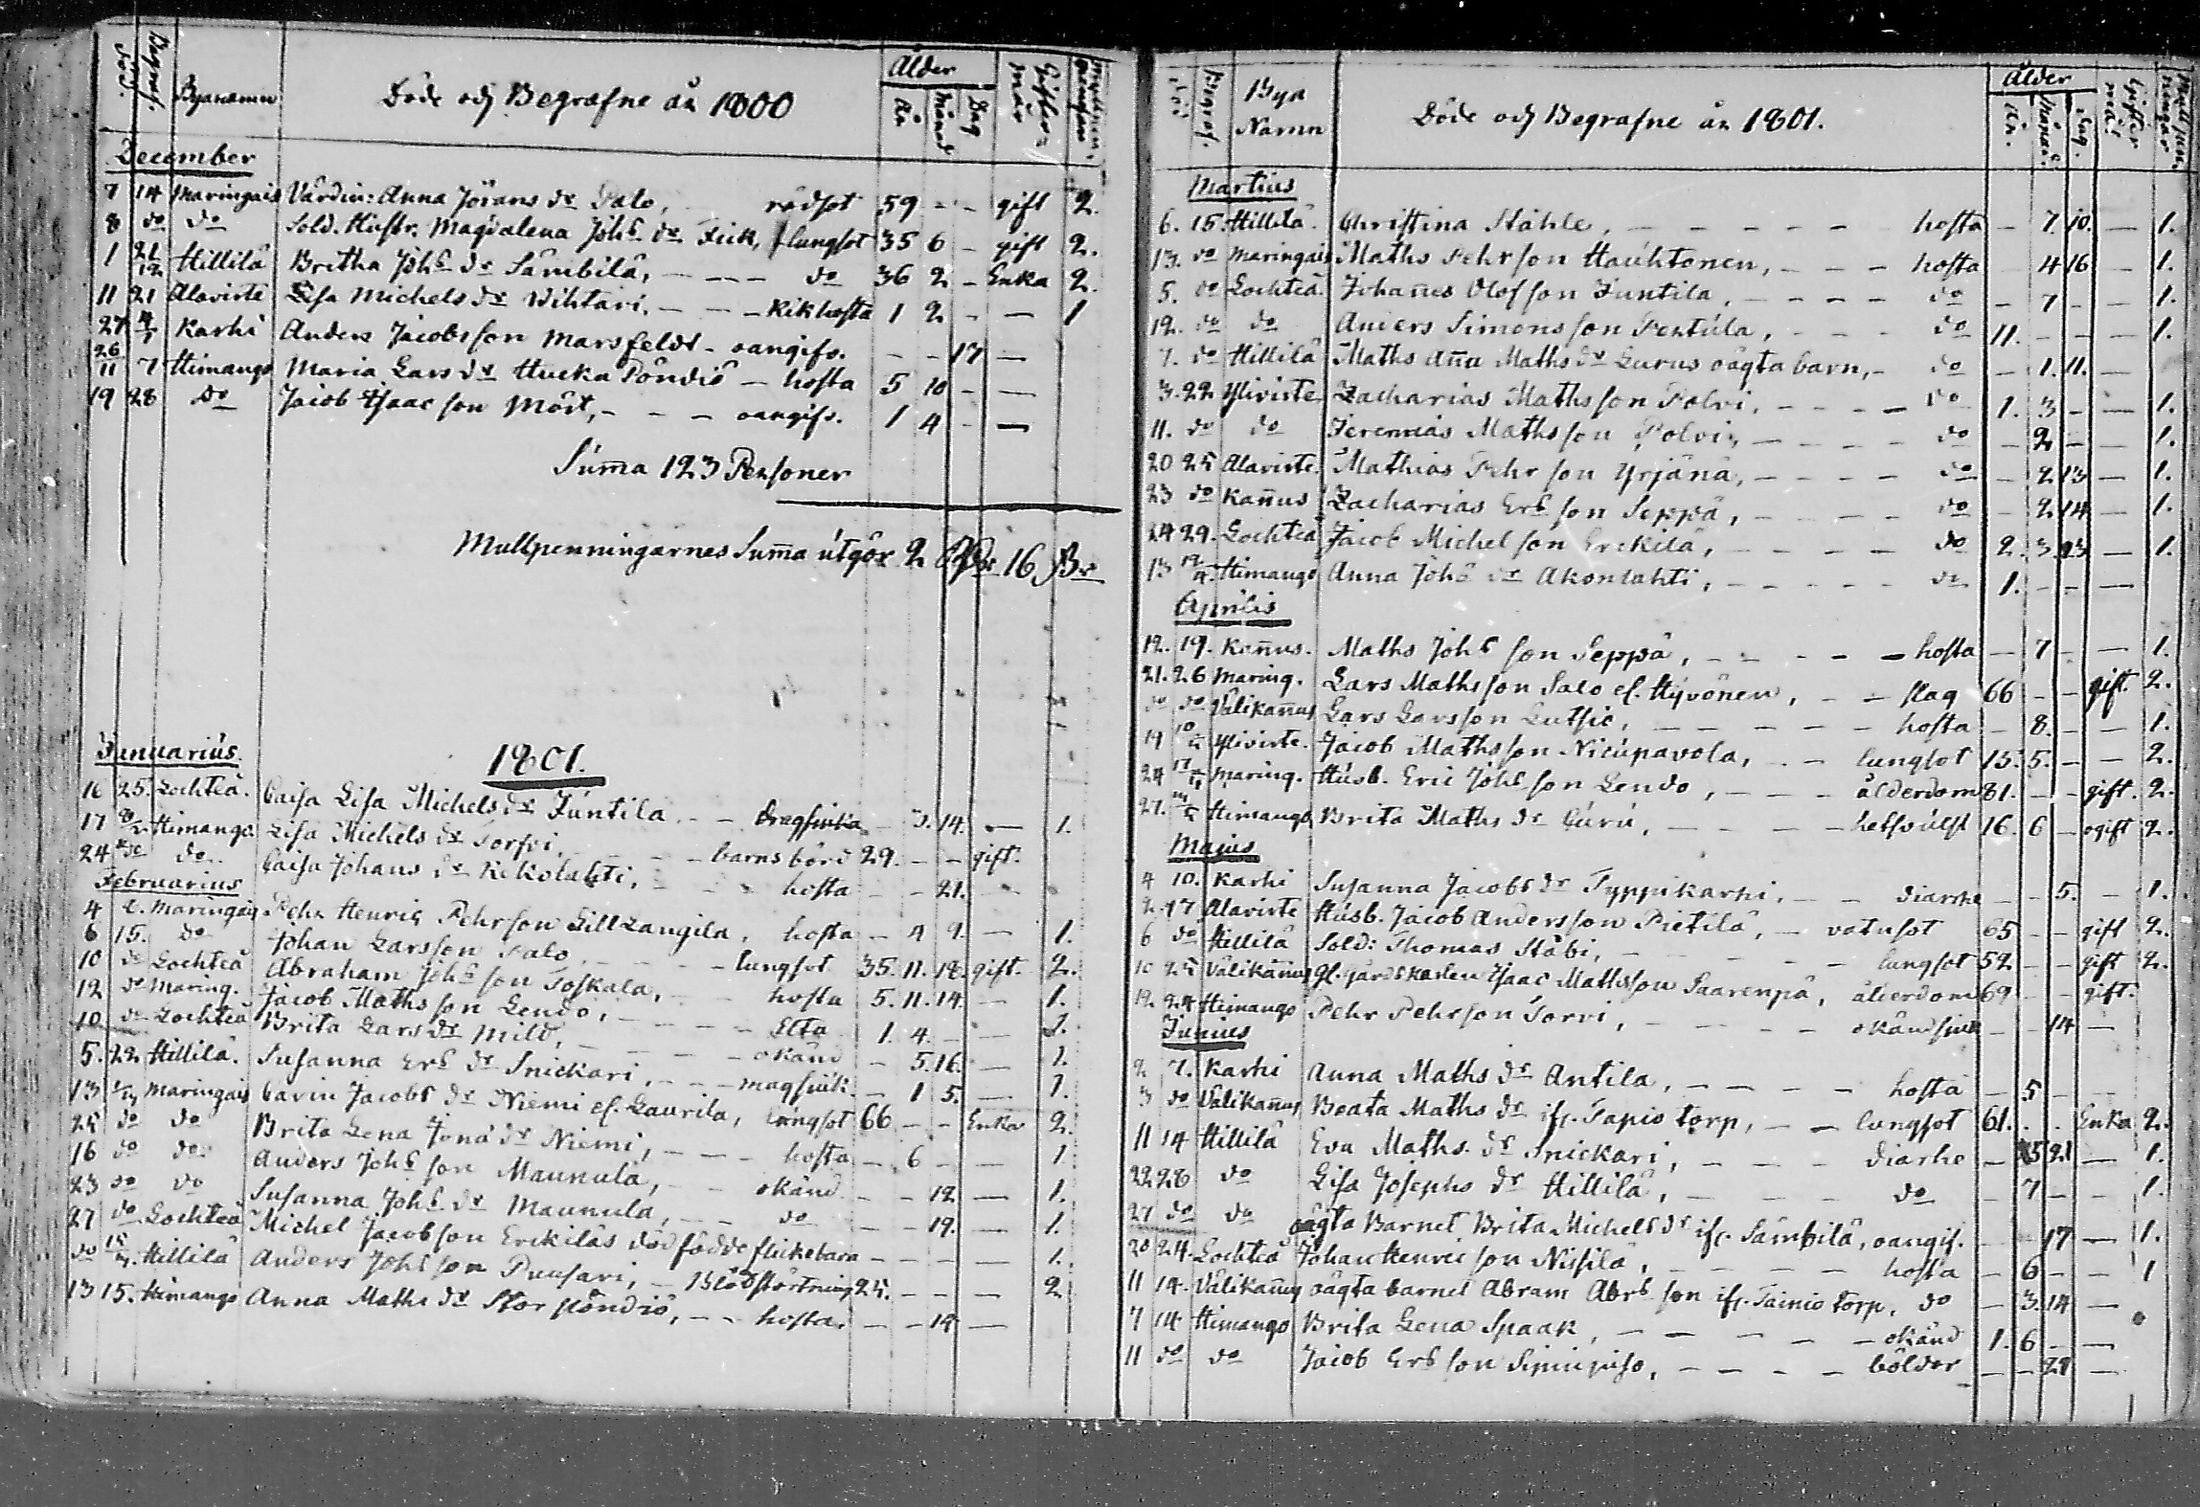 Död. Begrafs. Byanamn Döde och Begrafne år 1800 Ålder År Månad Dag Gifter=mål Mullpenningar
December
7 14 Maringais Värdin: Anna Jörans dr Palo, rödsot 59 - - gift 2.
8 do do Sold. Hustr. Magdalena Johs dr Fick, lungsot 35 6 - gift 2.
1 21/12 Hillilä Britha Johs dr Sämbilä, - - - do 36 2 - Enka 2.
11 21 Alaviste Lisa Michels dr Wihtari. - - - Kikhosta 1 2 - - 1
27 4/1 Karhi Anders Jacobsson Marsfeldt - oangifv. - - 17 -
26/11 7 Himango Maria Lars dr Hucka Pöndiö - hosta 5 10 - -
19 28 do Jacob Isaacson Möst, - - - oangifv. 1 4 - -
Suma 123 Personer
Mullpenningarnes Suma utgör 2 Rdr 16 s:
Januarius. 1801.
16 25. Lochteå. Caisa Lisa Michels dr Juntila - - dragsiuka - 3. 14. - 1.
17 8/2 Himango Lisa Michels dr Torfvi, - - barnsbörd 29. - - gift.
24 do do Caisa Johans dr Kekolahti, - - - hosta - - 21. -
Februarius
4 8. Maringais Pehr Henric Pehrson Lill Zangila, hosta - 4 9. - 1.
6 15. do Johan Larsson Palo - - - lungsot 35. 11. 18. gift. 2.
10 do Lochteå Abraham Johs son Toskala, - - hosta 5. 11. 14. - 1.
12 do Maring. Jacob Mathsson Lendo, - - - Elta 1. 4. - - 1.
10 do Lochteå Brita Lars dr Mild, - - - okänd - 5. 16. - 1.
5. 22 Hillilä. Susanna Ers dr Snickari, - - - magsiuk. - 1 5. - 1.
13 1/3 Maringais Carin Jacobs dr Niemi el. Laurila, lungsot 66 - - Enka 2.
25 do do Brita Lena Jonä dr Niemi, - - - hosta - 6 - - 1
16 do do Anders Johs son Maunula, - - okänd - - 12 - 1.
23 do do Susanna Johs dr Maunula, - - do - - 19. - 1.
27 do Lochteå Michel Jacobson Erckiläs dödfödde flickebarn - - - - 1.
do 15/3. Hillilä Anders Johs son Puusari, - Blodstörtning 25. - - - 2
13 15. Himango Anna Maths dr Storpöndiö, - - hosta. - - 14 -
Död Begraf. Bya Namn Döde och Begrafne år 1801. Ålder År. Månad. Dag. Gifter mål Mullpenningar
Martius
6. 15. Hillilä. Christina Ståhle, - - - - - hosta - 7. 10. - 1.
13. do Maringais Maths Pehrson Hauhtonen, - - - hosta - 4 16 - 1.
5. do Lochteå. Johanes Olofsson Juntila, - - - - do - 7 - - 1.
12. do do Anders Simonsson Pentula, - - - do 11. - - - 1.
7. do Hillilä Maths Aña Maths dr Lurus oägta barn, - do - 1. 11. -
3. 22 Yliviste Zacharias Mathsson Polvi, - - - - do 1. 3 - - 1.
11. do do Jeremias Mathsson Polvi, - - - - do - 2 - - 1.
20 25 Alaviste. Mathias Pehrson Yrjänä, - - - - do - 2 13 - 1.
23 do Kañus Zacharias Ers son Seppä, - - - - do - 2 14 - 1.
24 29. Lochteå Jacob Michelson Erckilä, - - - - do 2. 3. 23 - 1.
13 12/4. Himango Anna Johs dr Akonlahti, - - - - - do 1. - - -
Aprilis
12. 19. Kañus. Maths Johs son Seppä, - - - - - hosta - 7 - - 1.
21. 26 Maring. Lars Mathsson Salo el. Hyvönen, - - slag 66 - - gift. 2.
do do Välikañus Lars Larsson Lutsio, - - - - - hosta - 8. - - 1.
19 10/5 Yliviste. Jacob Mathsson Nicupavola, - - lungsot 15. 5. - - 2.
24 17/5 Maring. Husb. Eric Johs son Lendo, - - - ålderdom 81. - - gift. 2.
27. Himango Brita Maths dr Curu, - - - - halssvulst 16 6 - ogift 2.
Majus
4 10. Karhi Susanna Jacobs dr Typpikarhi, - - diarrhe - - 5. - 1.
2. 17 Alaviste Husb. Jacob Andersson Pietilä, - vatusot 65 - - gift 2.
6 do Hillilä Sold: Thomas Stäbi, - - - - - lungsot 52 - - gift 2.
10 25 Välikañus gl. gårdskarlen Isaac Mathsson Saarenpä, ålderdom 69 - - gift.
12. 24 Himango Pehr Pehrson Torvi, - - - - - okänd siuk - - 14 -
Junius
2 7. Karhi Anna Maths dr Antila, - - - - hosta - 5 - -
3 do Välikañus Beata Maths dr ifr. Tapio torp, - - lungsot 61. . . Enka 2.
11 14 Hillilä Eva Maths dr Snickari, - - - diarhe - 5 21 - 1.
22 28 do Lisa Josephs dr Hillilä, - - - - do - 7 - - 1.
27 do do oägta Barnet Brita Michels dr ifr. Sämbilä, oangif. - - 17 - 1.
20 24. Lochteå Johan Henricson Nissilä, - - - - hosta - 6 - - 1
11 14. Välikañus oägta barnet Abram Abrs son ifr. Tainio torp, do - 3. 14 -
7 14 Himango Brita Lena Spaak, - - - - - okänd 1. 6 - -
11 do do Jacob Ers son, - - - - bölder - - 21 -